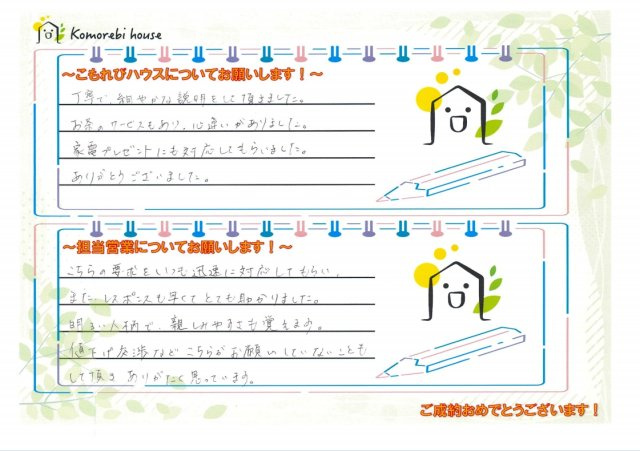 Komorebi house
～こもれびハウスについてお願いします！～
丁寧で細やかな説明をして頂きました。
お茶のサービスもあり、心遣いがありました。
家電プレゼントにも対応してもらいました。
ありがとうございました。
～担当営業についてお願いします！～
こちらの要求をいつも迅速に対応してもらい、
また、レスポンスも早くてとても助かりました。
明るい人柄で、親しみやすさも覚えます。
値下げ交渉などこちらがお願いしていないことも
して頂きありがたく思っています。
ご成約おめでとうございます！